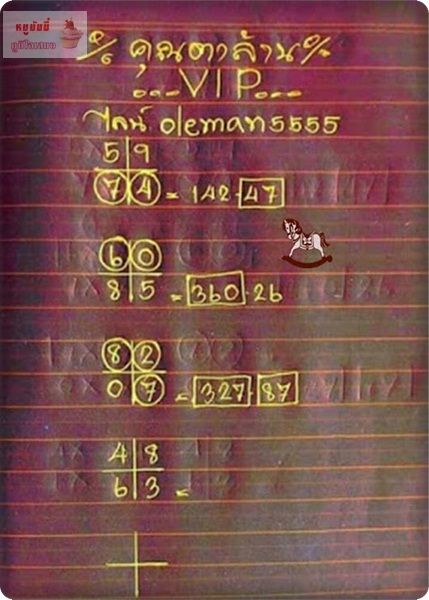 หมูยันนี่
ภูมิใจเสนอ
% คุณตาล้าน %
...VIP...
ไลน์ oleman5555
5 9
7 4 = 142-47
6 0
8 5 = 360-26
8 2
0 7 = 327-87
4 8
6 3 =